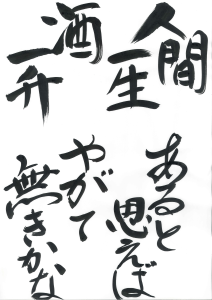 人間
一生
酒
一升
あると
思えば
やがて
無きかな